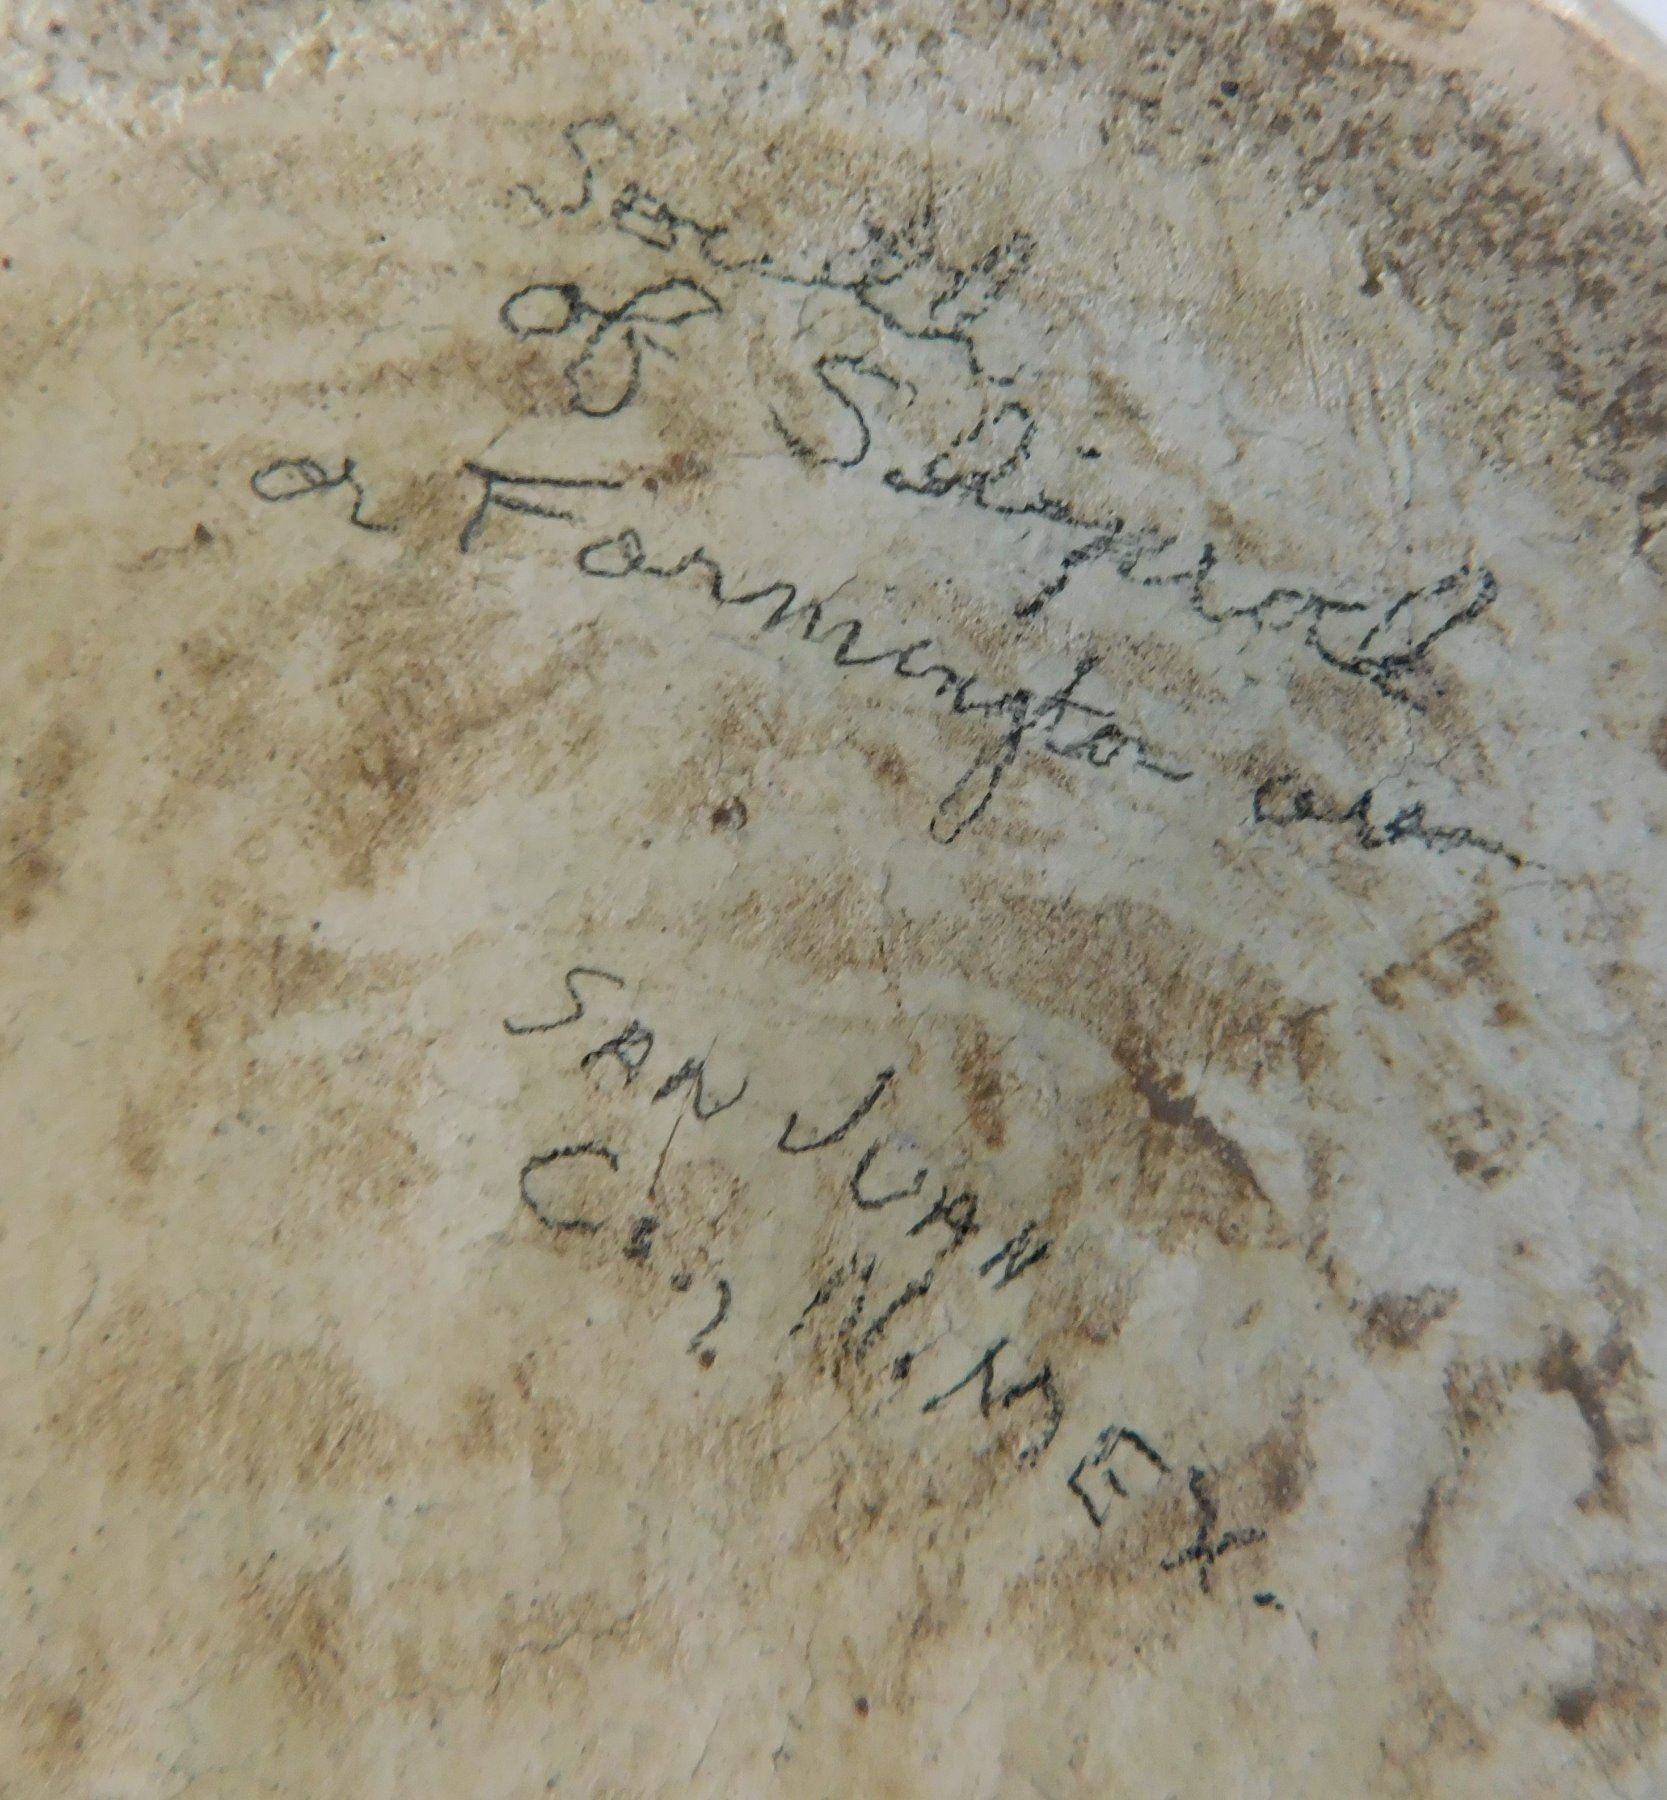 South
of Shiprock
or Farmington area
SAN JUAN
Co.? N. MEX.